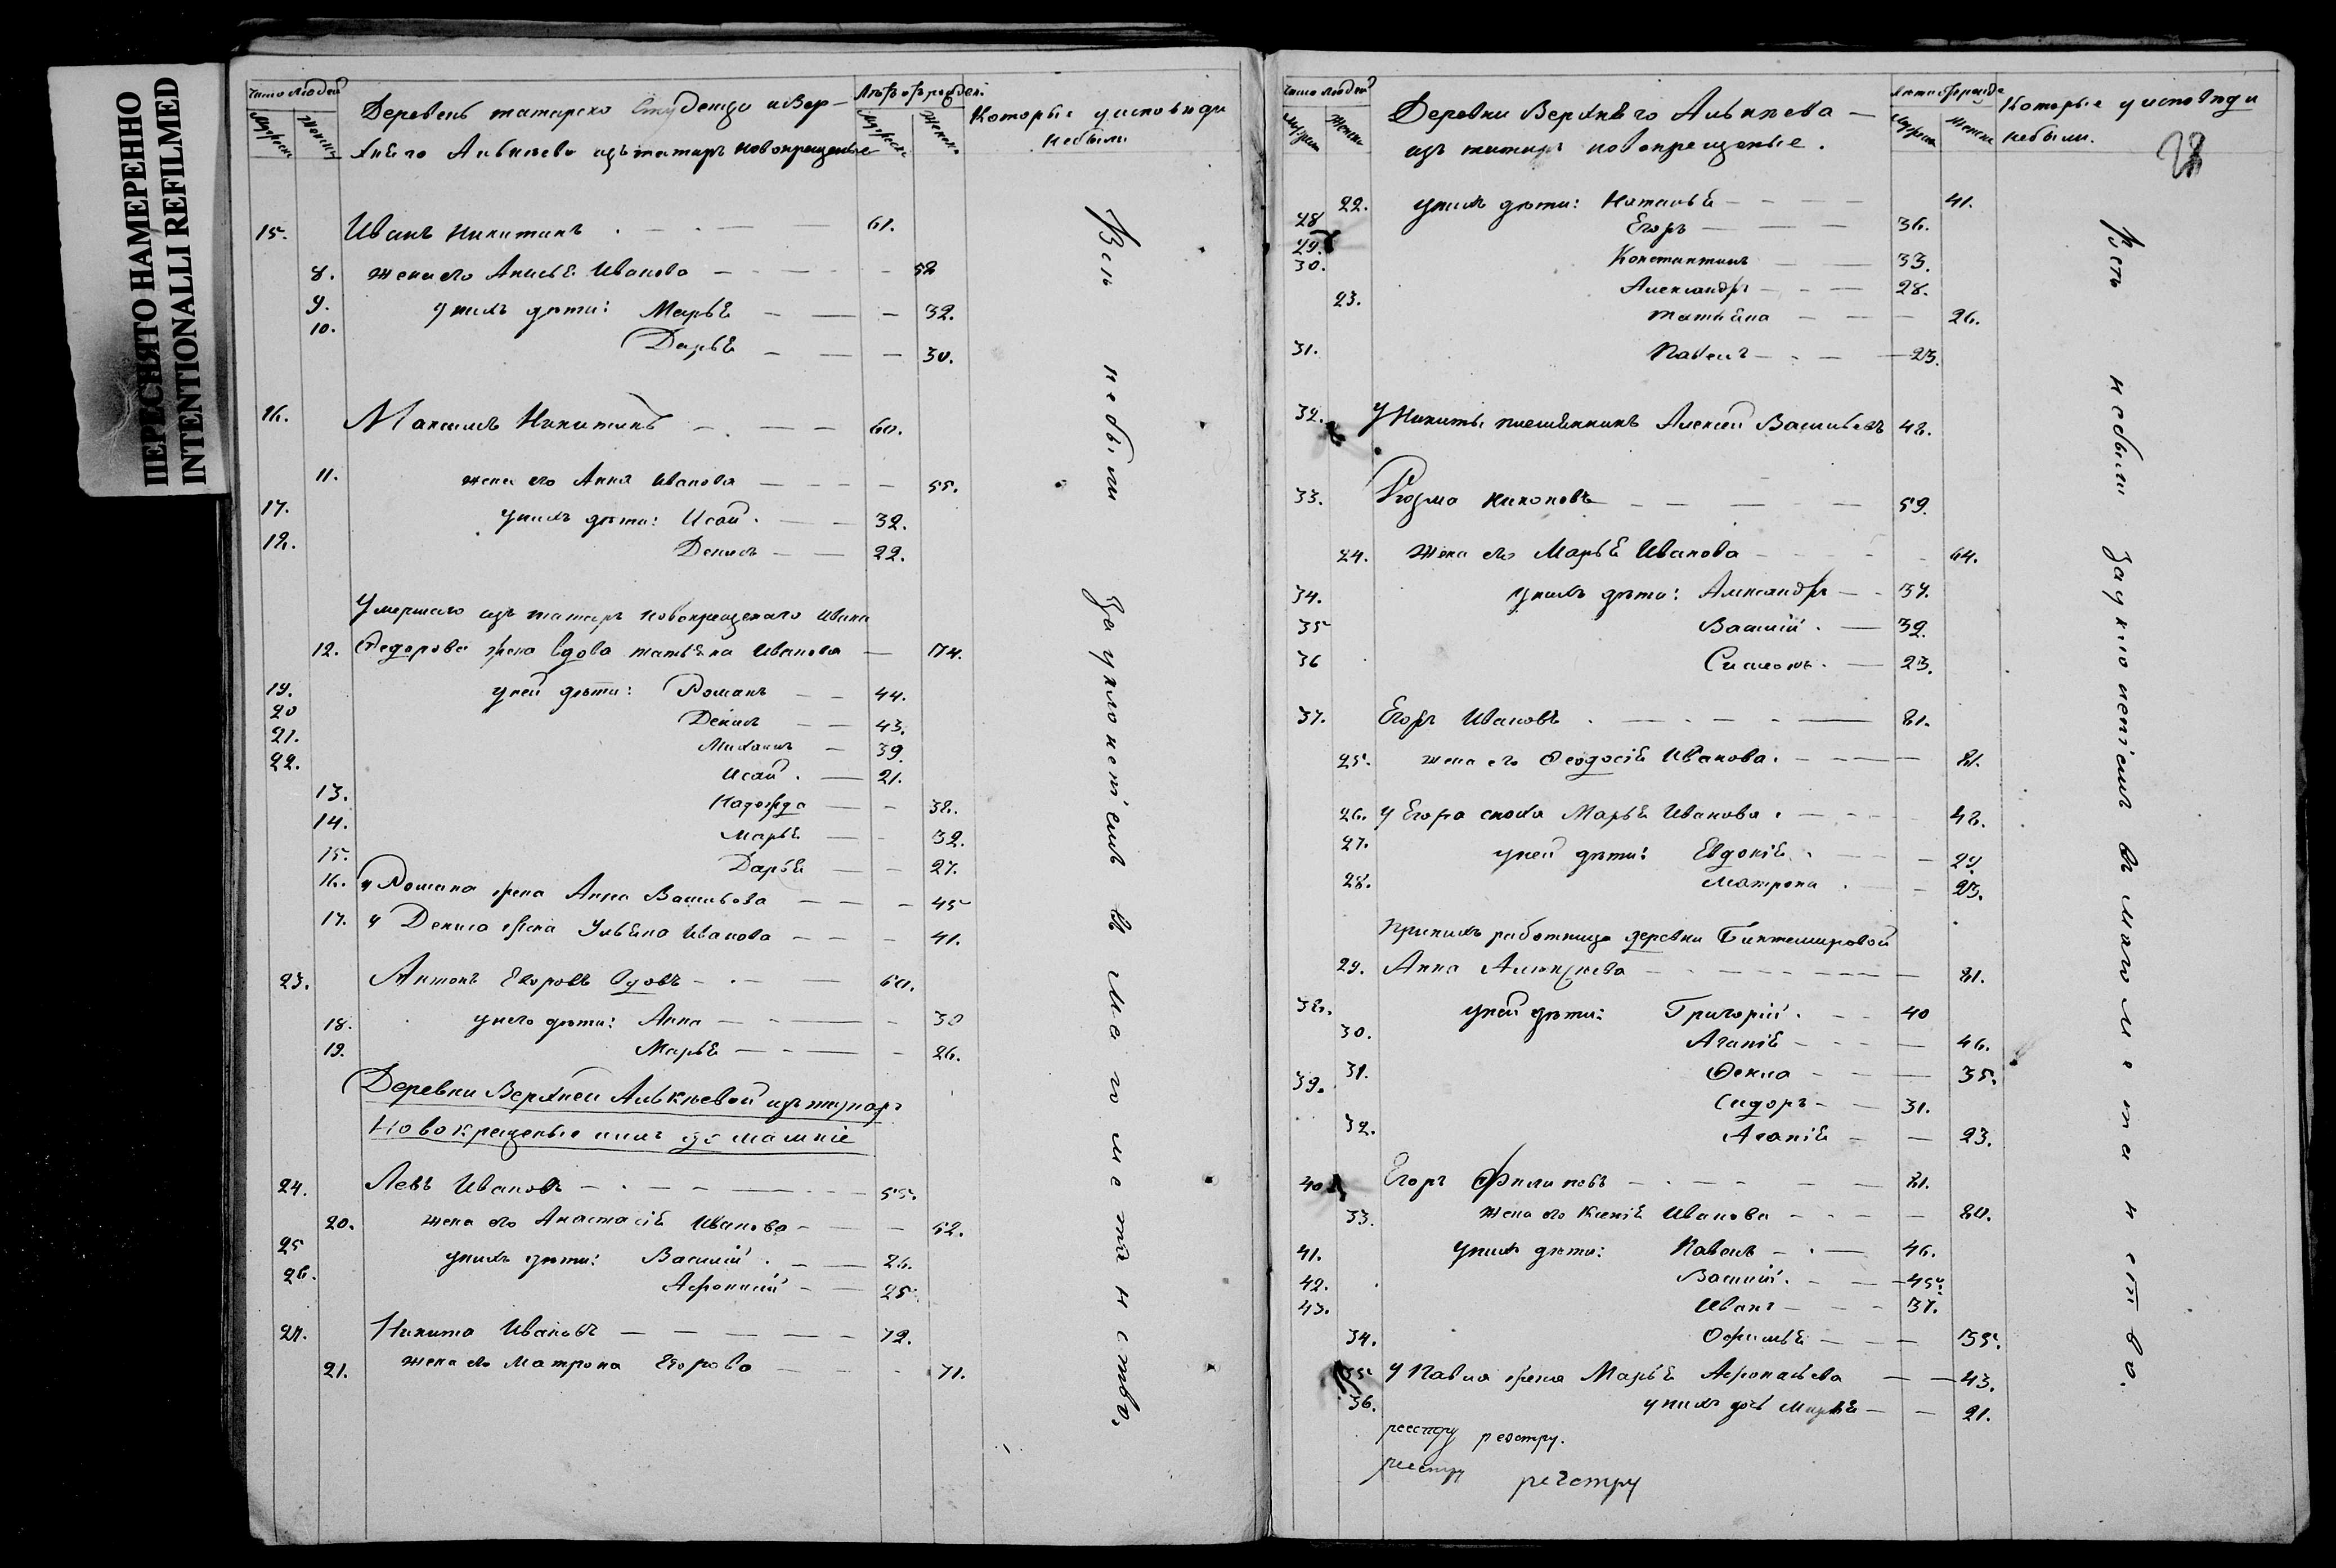 ПЕРЕСНЯТО НАМЕРЕННО
INTENTIONALLI REFILMED
Число людей
Мужеска
Женска
Деревень татарско Студенца и Вер-
хнѣго Алькѣева изъ татаръ новокрещеные
Лѣтъ от рожден.
Мужеска
Женска
Которые у исповѣди
небыли
15. Иванъ Никитинъ 61.
8. жена его Анисьѣ Иванова 52
9. у нихъ дѣти: Марьѣ 32.
10. Дарьѣ 30.
16. Максимъ Никитинъ 60.
11. жена его Анна Иванова 55.
17. у нихъ дѣти: Исай 32.
18. Денисъ 22.
Умершаго изъ татаръ новокрещенаго Ивана
12. Федорова жена вдова татьѣна Иванова 74.
19. у ней дѣти: Романъ 44.
20 Денисъ 43.
21. Михаилъ 39.
22. Исай 21.
13. Надежда 38.
14. Марьѣ 32.
15. Дарьѣ 27.
16. у Романа жена Анна Васильева 45
17. у Дениса жена Ульѣна Иванова 41.
23. Антонъ Егоровъ вдовъ 60.
18. у него дѣти: Анна 30
19. Марьѣ 26.
Деревни Верхней Алькѣевой изъ татаръ
новокрещеные
24. Левъ Ивановъ 55.
20. жена его Анастасіѣ Иванова 52.
25 у нихъ дѣти: Василій 26.
26. Афонасій 25.
27. Никита Ивановъ 72.
21. жена его Матрона Егорова 71.
Всѣ небыли за уклоненіемъ в магометанство.
Число людей
Мужеска
Женска
Деревни Верхнѣго Алькѣева
изъ татаръ новокрещеные.
Лѣта от рожде
Мужеска
Женска
Которые у исповѣди
небыли.
28
22. у нихъ дѣти: Наталья 41.
28 Егоръ 36.
29. Константинъ 33.
30. Александръ 28.
23. татьѣна 26.
31. Павелъ 23.
32. У Никиты племянникъ Алексей Васильевъ 48.
33. Козма Никоновъ 59.
24. жена его Марьѣ Иванова 64.
34. у нихъ дѣти: Александръ 37.
35 Василій 32.
36 Симеонъ 23.
37. Егоръ Ивановъ 81.
25. жена его Феодосіѣ Иванова 81.
26. у Егора сноха Марьѣ Иванова 48.
27. у ней дѣти: Евдокіѣ 27.
28. Матрона 23.
При нихъ работница деревни Биктемировой
29. Анна Алексѣева 81.
38. у ней дѣти: Григорій 40
30. Агапіѣ 46.
31. Фекла 35.
39. Сидоръ 31.
32. Агапіѣ 23.
40 Егоръ Филиповъ 81.
33. жена его Ксеніѣ Иванова 80.
41. у нихъ дѣти: Павелъ 46.
42. Василій 45.
43. Иванъ 37.
34. Офимьѣ 35.
35 У Павла жена Марьѣ Афонасьева 43.
36. у нихъ дочь Марьѣ 21.
реестру реэстру.
реестру регстру
Всѣ небыли за уклоненіемъ въ магометанство.